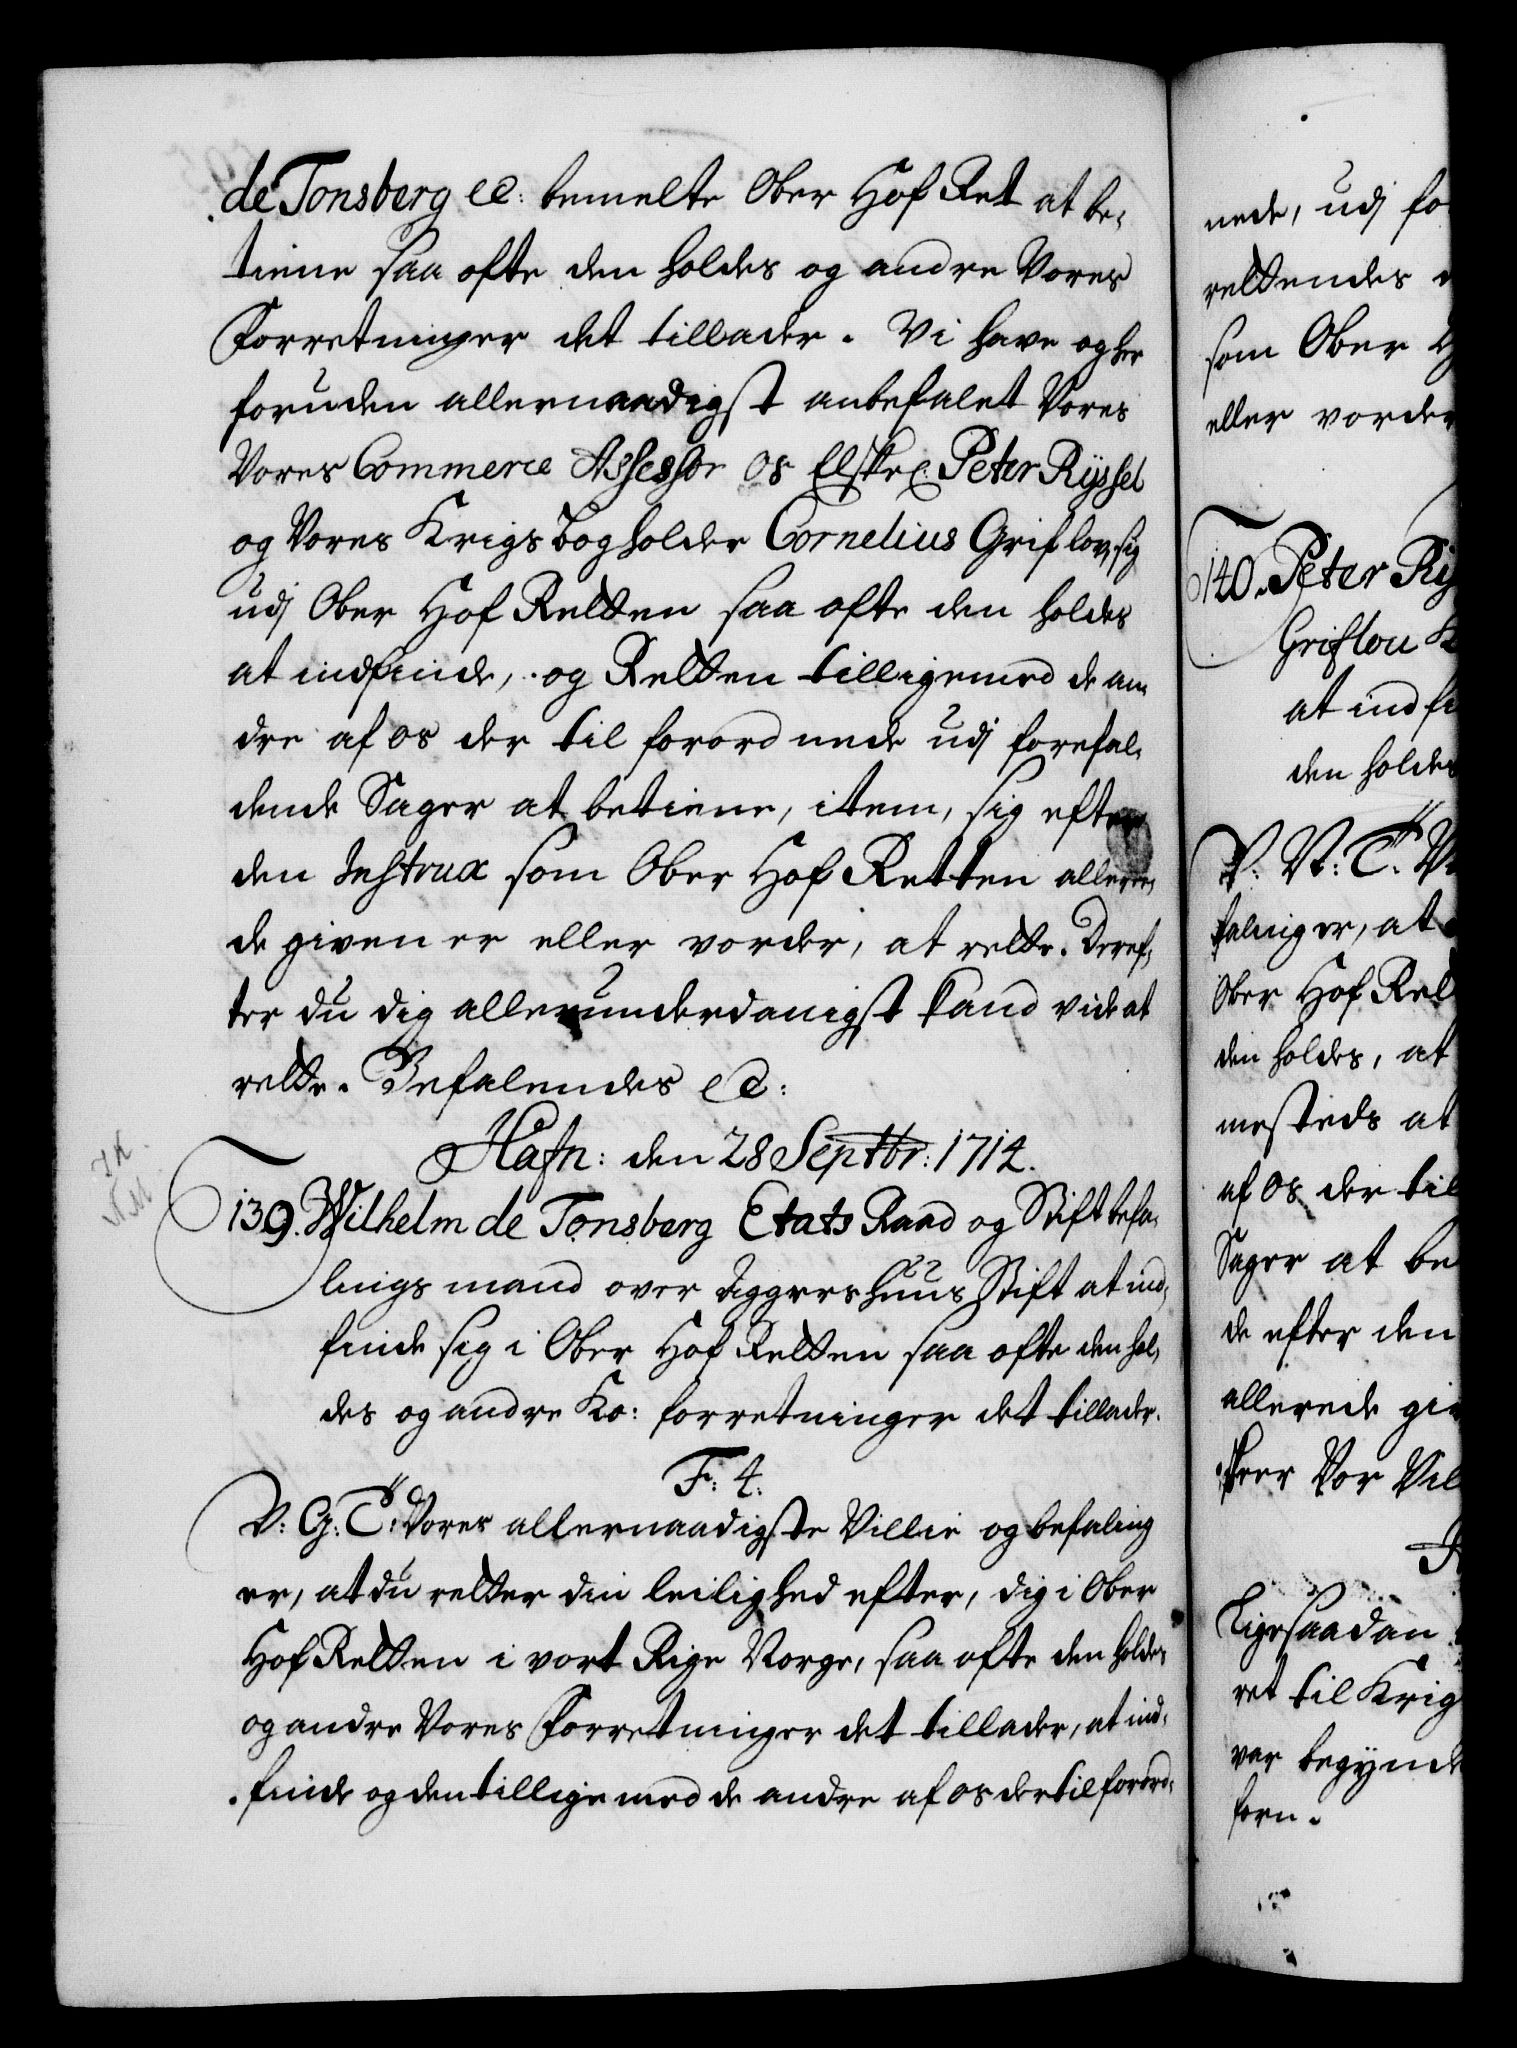 de Tonsberg etc: bemelte Ober Hof Ret at be,
tiene saa ofte den holdes og andre Vores
Forretninger det tillader. Vi have og her
foruden allernaadigst anbefalet Vores
Vores Commerce Assessor os Elskel. Peter Ryssel
og Vores Krigs bogholder Cornelius Griflov, sig
udj Ober Hof Retten saa ofte den holdes
at indfinde, og Retten tilligemed de an,
dre af os der til forordnede udj forefal,
dende Sager at betiene, item, sig efter
den Instrux som Ober Hof Retten allere,
de given er eller vorder, at rette. Deref,
ter du dig allerunderdanigst kand vide at
rette. Befalendes etc:
Hafn: den 28 Septbr: 1714.
139. Wilhelm de Tonsberg Etats Raad og Stiftbefa,
lings mand over Aggershuus Stift at ind,
finde sig i Ober Hof Retten saa ofte den hol,
des og andre Ko: forretninger det tillader.
F: 4.
V: G: T: Vores allernaadigste Villie og befaling
er, at du retter din leilighed efter, dig i Ober
Hof Retten i vort Rige Norge, saa ofte den holdes
og andre Vores Forretninger det tillader, at ind,
finde og den tillige med de andre af os dertil forord,
nede, udj fo
rettendes
som Ober H
eller vorder
140. Peter Ry
Griflou K
at indfi
den holdes
V: V: T: Vo
faling er, at
Ober Hof Ret
den holdes, at
mesteds at
af os der til
Sager at be
de efter den
allerede giv
skeer Vor Vil
Ligesaadan
ret til Krig
var begynde
forn.